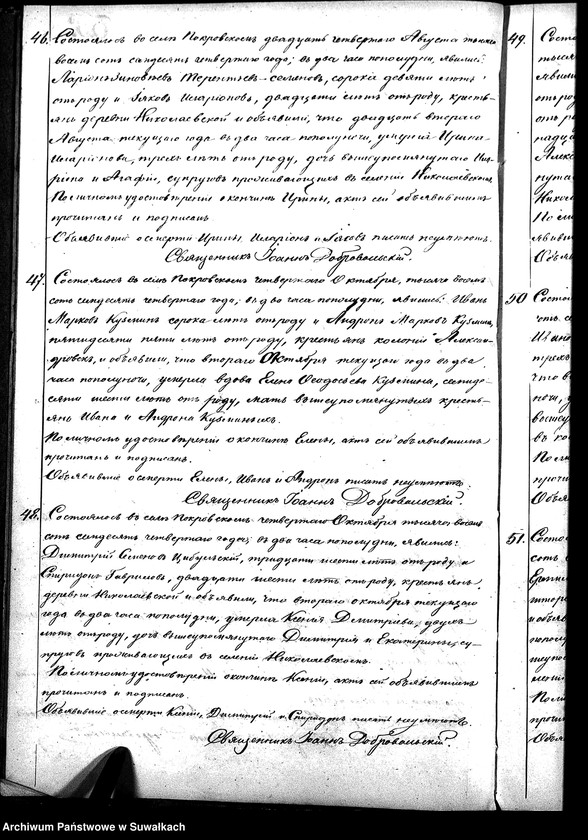 46. Состоялось въ селѣ Покровскомъ двадцать четвертаго Августа тысяча
восемь сотъ семдесять четвертаго года; въ два часа пополудни, явились:
Ларіонъ Зиновьевъ Терентьевъ, сорока девяти лѣтъ
отъ роду и Яковъ Иларіоновъ, двадцати лѣтъ отъ роду, кресть-
яне деревни Николаевской и объявили, что двадцать втораго
Августа текущаго года въ два часа пополуночи, умерла Ирина
Иларіонова, трехъ лѣтъ отъ роду, дочь вышеупомянутаго Ила-
ріона и Агафіи, супруговъ проживающихъ въ селеніи Николаевскомъ
По личномъ удостовѣреніи о кончинѣ Ирины, актъ сей объявившимъ
прочитанъ и подписанъ
Объявившіе о смерти Ирины, Иларіонъ и Яковъ писать неумѣютъ.
Священникъ Іоаннъ Добровольскій.
47. Состоялось въ селѣ Покровскомъ четвертаго Октября, тысяча восемь
сотъ семдесять четвертаго года; въ два часа пополудни, явились: Иванъ
Марковъ Кузминъ сорока лѣтъ отъ роду и Андронъ Марковъ Кузминъ,
пятидесяти пяти лѣтъ отъ роду, крестьяне колоніи Алексан-
дровскъ, и объявили, что втораго Октября текущаго года въ два
часа пополуночи, умерла вдова Елена Ѳеодосьева Кузмина, семиде-
сяти шести лѣтъ отъ роду, мать вышеупомянутыхъ кресть-
янъ Ивана и Андрона Кузминыхъ.
По личномъ удостовѣреніи о кончинѣ Елены, актъ сей объявившимъ
прочитанъ и подписанъ.
Объявившіе о смерти Елены, Иванъ и Андронъ писать неумѣютъ.
Священникъ Іоаннъ Добровольскій.
48. Состоялось въ селѣ Покровскомъ четвертаго Октября тысяча восемь
сотъ семдесять четвертаго года; въ два часа пополудни, явились:
Димитрій Семеновъ Цибульскій, тридцати шести лѣтъ отъ роду и
Спиридонъ Гавриловъ, двадцати шести лѣтъ отъ роду, крестьяне
деревни Николаевской и объявили, что втораго октября текущаго
года въ два часа пополудни, умерла Ксенія Дмитріева, двухъ
лѣтъ отъ роду, дочь вышеупомянутаго Димитрія и Екатерины, су-
пруговъ проживающихъ въ селеніи Николаевскомъ.
По личномъ удостовѣреніи о кончинѣ Ксеніи, актъ сей объявившимъ
прочитанъ и подписанъ.
Объявившіе о смерти Ксеніи, Димитрій и Спиридонъ писать неумѣютъ.
Священникъ Іоаннъ Добровольскій.
49.
50
51.
Archiwum Państwowe w Suwałkach